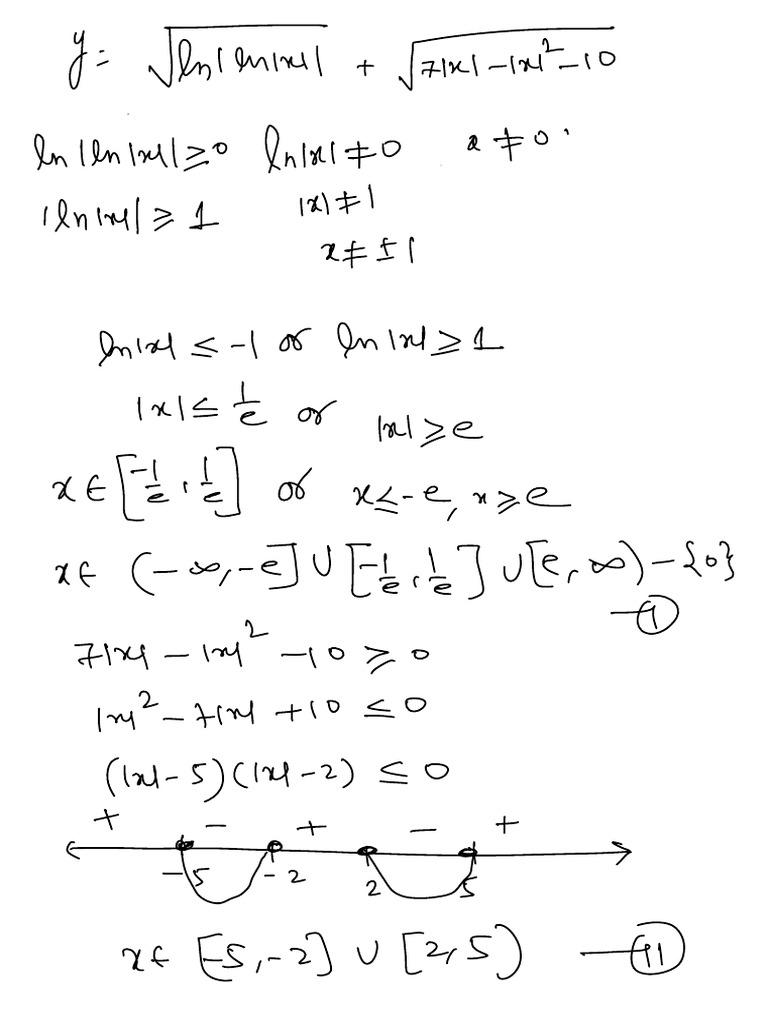 y = √ln|ln|x|| + √7|x|-|x|²-10
ln|ln|x|| ≥ 0 ln|x| ≠ 0 x ≠ 0.
|ln|x|| ≥ 1 |x| ≠ 1
x ≠ ±1
ln|x| ≤ -1 or ln|x| ≥ 1
|x| ≤ 1/e or |x| ≥ e
x ∈ [-1/e, 1/e] or x ≤ -e, x ≥ e
x ∈ (-∞, -e] ∪ [-1/e, 1/e] ∪ [e, ∞) - {0}
—①
7|x| - |x|² - 10 ≥ 0
|x|² - 7|x| + 10 ≤ 0
(|x| - 5)(|x| - 2) ≤ 0
+ - + - +
-5 -2 2 5
x ∈ [-5, -2] ∪ [2, 5) —⑪